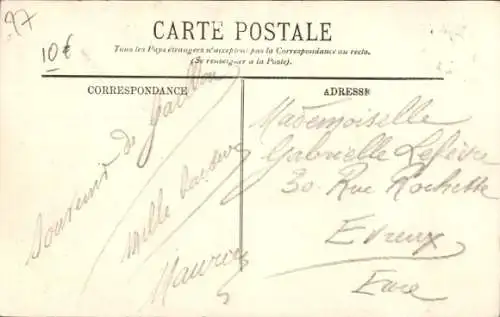 27
10€
CARTE POSTALE
Tous les Pays étrangers n'acceptent pas la Correspondance au recto.
(Se renseigner à la Poste).
CORRESPONDANCE
Souvenir de Gaillon
Mille baisers
Maurice
ADRESSE
Mademoiselle
Gabrielle Lefèvre
30 Rue Rochette
Evreux
Eure